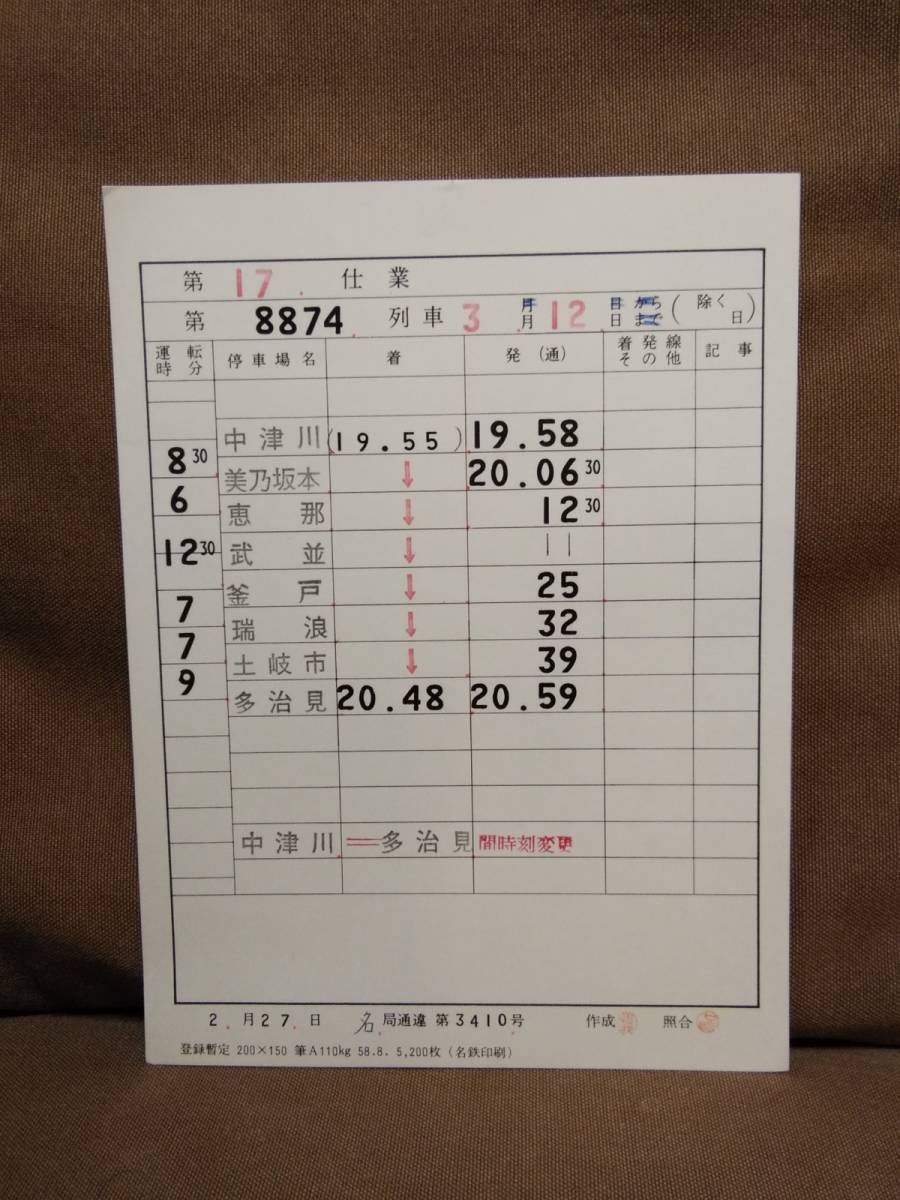 第 17 仕業
第 8874 列車 3 月 月 12 日から 日まで (除く 日)
運転時分 停車場名 着 発(通) 着発線その他 記事
中津川 (19.55) 19.58
8 30
美乃坂本 ↓ 20.06 30
6
恵那 ↓ 12 30
12 30
武並 ↓ ||
釜戸 ↓ 25
7
瑞浪 ↓ 32
7
土岐市 ↓ 39
9
多治見 20.48 20.59
中津川 ═ 多治見 間時刻変更
2.月27.日 名.局通達 第3410号 作成 照合
登録暫定 200×150 筆A110kg 58.8. 5,200枚 (名鉄印刷)